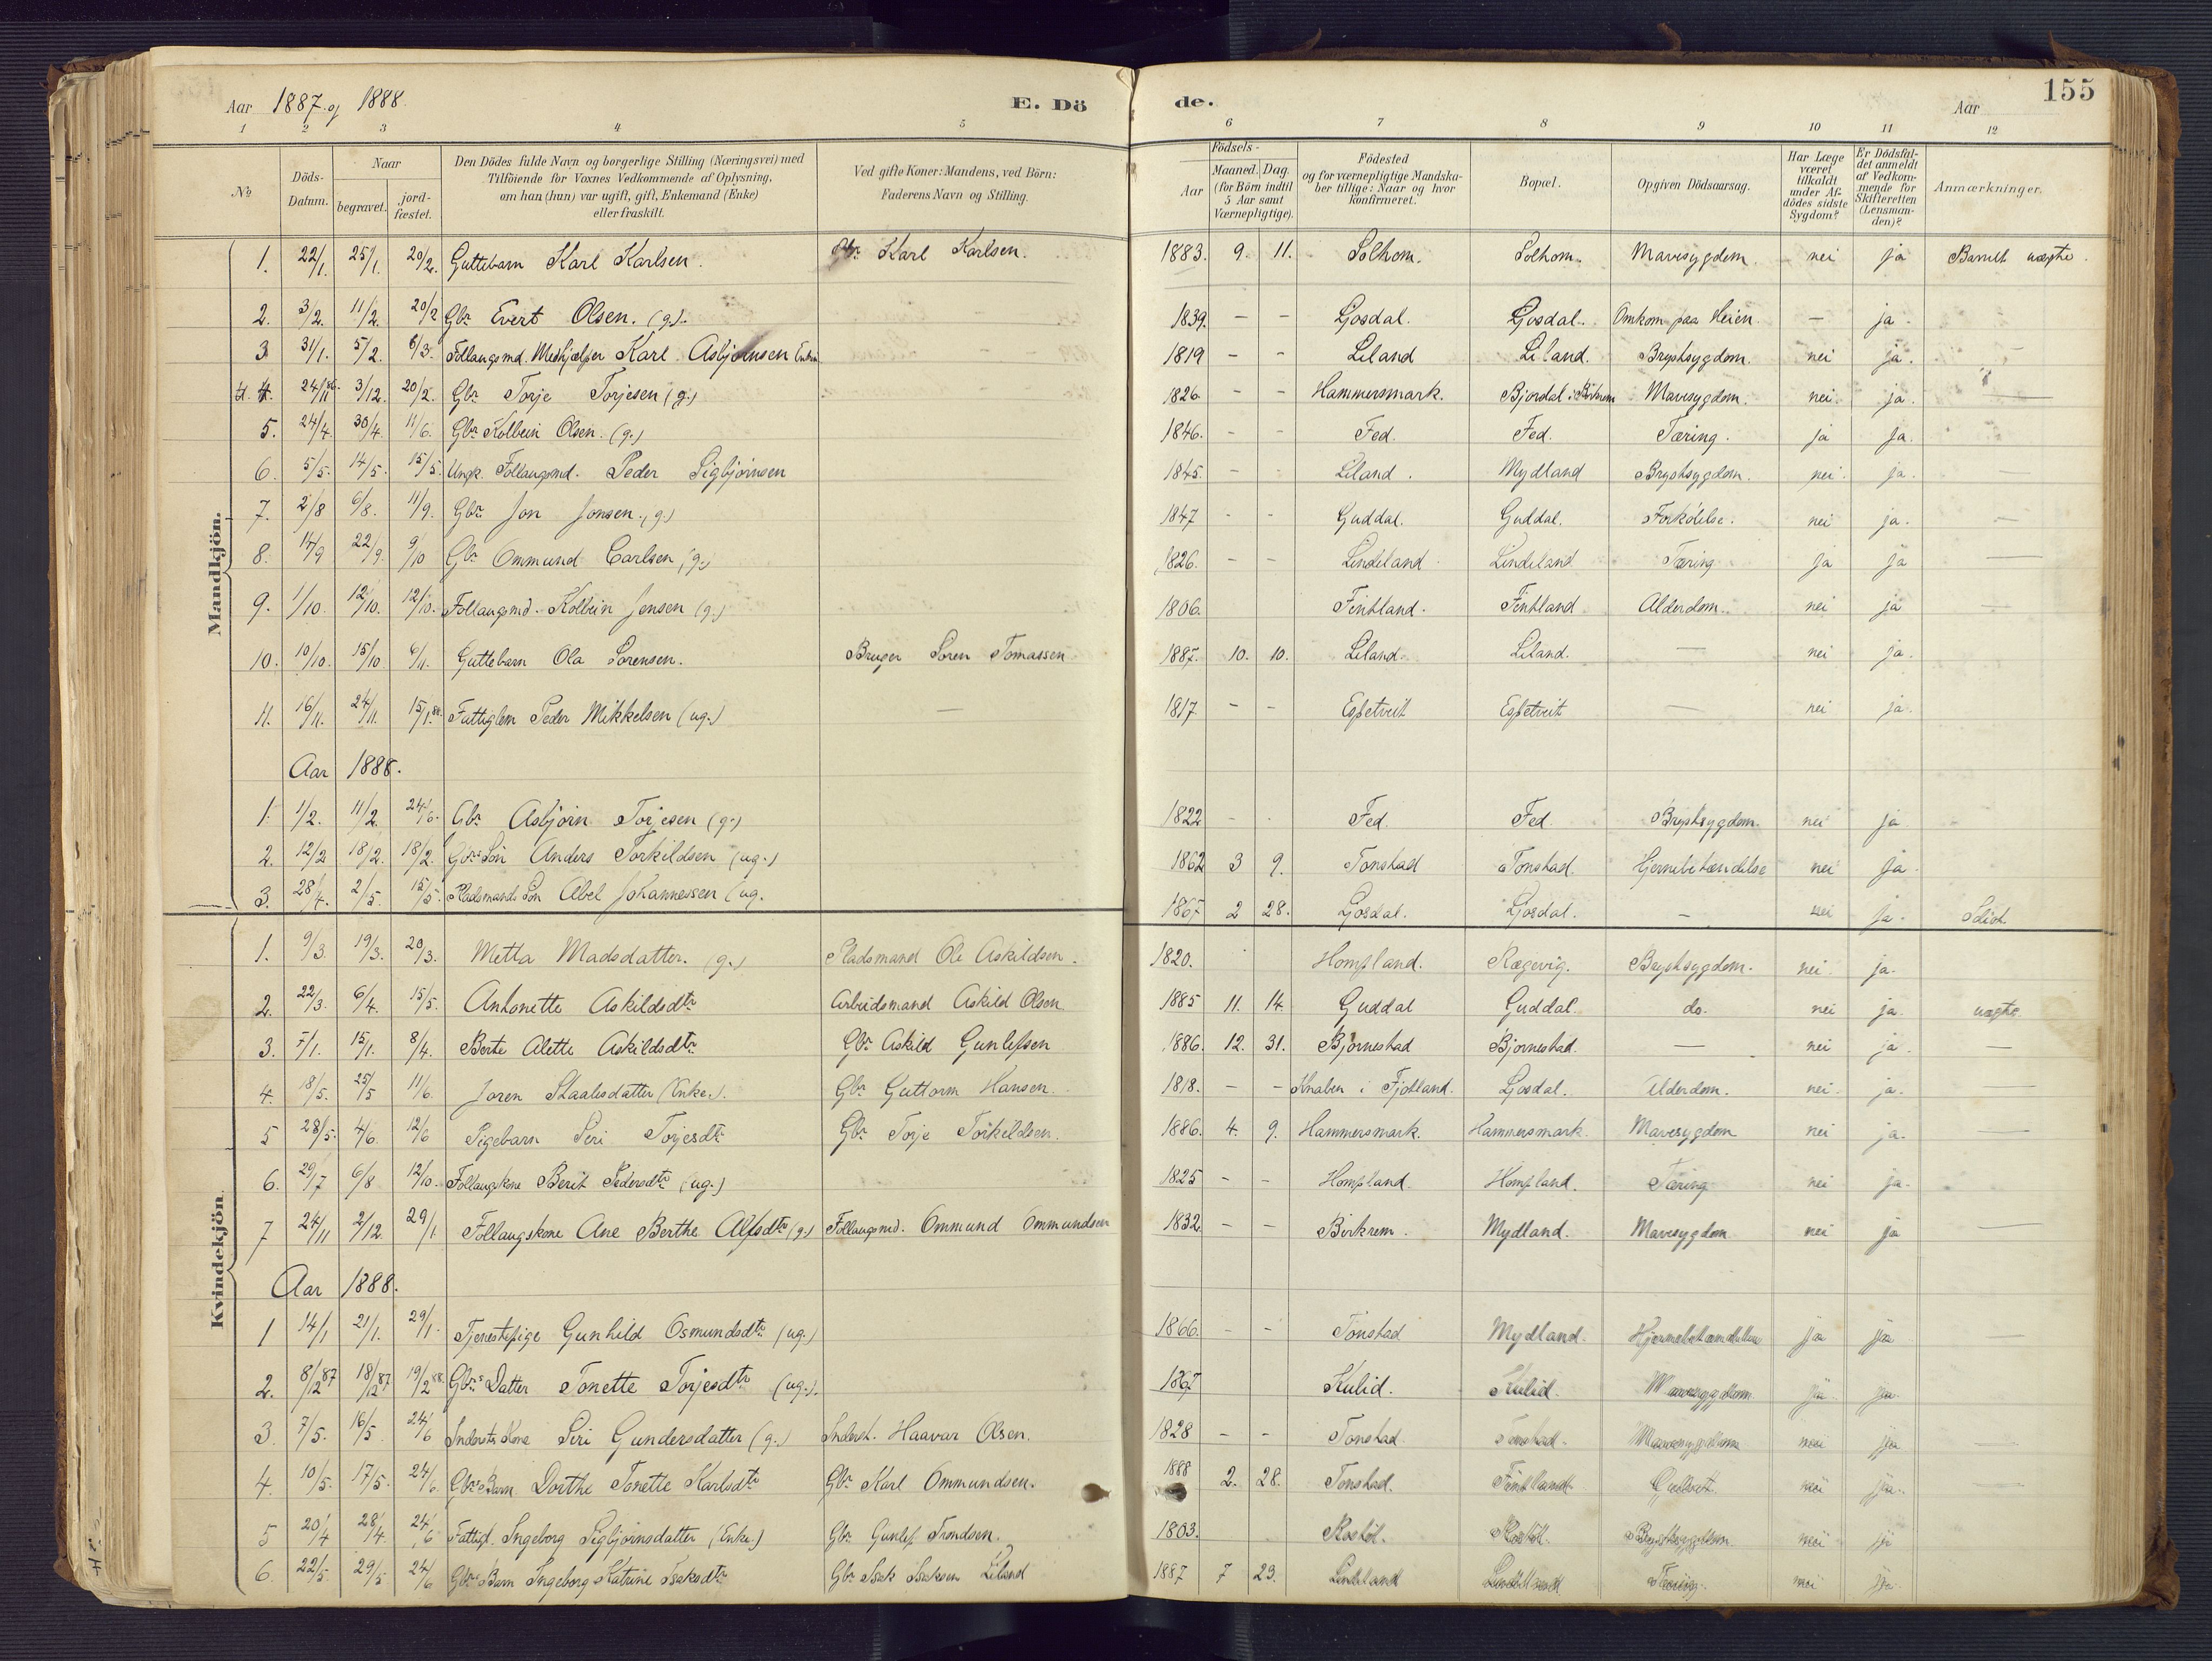 155
Aar 1887 og 1888. E. Dö de. Aar
1 2 3 4 5 6 7 8 9 10 11 12
No Döds-Datum. Naar begravet. jord-fæstet. Den Dödes fulde Navn og borgerlige Stilling (Næringsvei) med Tilföiende for Voxnes Vedkommende af Oplysning, om han (hun) var ugift, gift, Enkemand (Enke) eller fraskilt. Ved gifte Koner: Mandens, ved Börn: Faderens Navn og Stilling. Födsels- Aar Maaned. Dag. (for Börn indtil 5 Aar samt Værnepligtige). Födested og for værnepligtige Mandskaber tillige: Naar og hvor konfirmeret. Bopæl. Opgiven Dödsaarsag. Har Læge været tilkaldt under Afdödes sidste Sygdom? Er Dödsfaldet anmeldt af Vedkommende for Skifteretten (Lensmanden)? Anmærkninger.
Mandkjön.
1. 22/1. 25/1. 20/2. Guttebarn Karl Karlsen. Gbr. Karl Karlsen. 1883. 9. 11. Solhom. Solhom. Mavesygdom. nei ja Barnet uægte.
2. 3/2. 11/2. 20/2 Gbr. Evert Olsen. (g.). 1839. - - Gosdal. Gosdal. Omkom paa Heien. - ja.
3 31/1. 5/2. 6/3. Follaugsmd. Medhjælper Karl Asbjørnsen Enkm. 1819 - - Liland Liland. Brystsygdom. nei ja. -
4. 4. 24/11 86. 3/12. 20/2. Gbr. Torje Torjesen (g.) 1826. - - Hammersmark. Bjordal i Birkrem Mavesygdom. nei. ja. -
5. 24/4. 30/4. 11/6. Gbr. Kolbein Olsen. (g.) 1846. - - Fed. Fed. Tæring. ja ja.
6. 5/5. 14/5. 15/5. Ungk. Follaugsmd. Peder Sigbjörnsen 1845. - - Liland. Mydland Brystsygdom. nei. ja. -
7. 2/8 6/8. 11/9. Gbr. Jon Jonsen. (g.) 1847 - - Guddal. Guddal. Forkölelse. nei ja. -
8. 14/9 22/9. 9/10 Gbr. Ommund Carlsen (g.) 1826. - - Lindeland Lindeland Tæring ja ja -
9. 1/10. 12/10. 12/10. Follaugsmd. Kolbein Jensen (g.) 1806. Fintland. Fintland Alderdom. nei ja -
10. 10/10. 15/10 6/11. Guttebarn Ola Sorensen. Bruger Soren Tomassen 1887. 10. 10. Liland. Liland. - nei ja.
11. 16/11. 24/11. 15/1.88. Fattiglem Peder Mikkelsen (ug.) - 1817. - - Espetveit Espetveit - nei ja.
Aar 1888.
1. 1/2. 11/2. 24/6. Gbr. Asbjörn Torjesen (g.) 1822 - Fed. Fed. Brystsygdom. nei ja
2. 12/2 18/2. 18/2. Gbrs Sön Anders Torkildsen (ug.) 1862 3 9. Tonstad Tonstad. Hjernebetændelse nei ja
3. 28/4. 2/5. 15/5. Pladsmands Sön Abel Johannessen (ug. 1867 2 28. Gosdal. Gosdal. - nei ja.
Kvindekjön.
1. 9/3. 19/3. 20/3. Metta Madsdatter. (g.) Pladsmand Ole Askildsen. 1820. Hompland. Rægevig. Brystsygdom. nei. ja.
2. 22/3. 6/4. 15/5. Antonette Askildsdtr Arbeidsmand Askild Olsen 1885 11. 14. Guddal Guddal. do. nei ja. uægte.
3. 7/1. 15/1. 8/4. Berte Alette Askildsdtr Gbr. Askild Gunlefsen 1886. 12. 31. Bjornestad Bjornestad. - nei ja. -
4. 18/5. 25/5 11/6. Joren Staalesdatter (Enke.). Gbr. Guttorm Hansen. 1818. - - Knaben i Fjotland. Gosdal. Alderdom. nei. ja. -
5 28/5. 4/6. 12/6 Pigebarn Seri Torjesdtr Gbr. Torje Torkildsen. 1886. 4. 9. Hammersmark. Hammersmark. Mavesygdom nei ja. -
6. 29/7 6/8 12/10. Follaugskone Berit Pedersdtr (ug.) 1825 - - Hompland. Hompland. Tæring nei ja.
7 24/11 2/12. 29/1. Follaugskone Ane Berthe Alfsdtr (g.) Follaugsmd. Ommund Ommundsen 1832. - - Birkrem. Mydland. Mavesygdom nei ja -
Aar 1888.
1 14/1 21/1. 29/1. Tjenestepige Gunhild Osmundsdtr (ug.) 1866. - - Tonstad Mydland. Hjernebetændelse ja ja -
2. 8/12 87 18/12 87 19/2 88. Gbrs Datter Tonette Torjesdtr (ug.). 1867 Kulid. Kulid. Mavesygdom ja ja
3 7/5. 16/5 24/6 Indersts Kone Siri Gundersdatter (g.) Inderst. Haavar Olsen. 1828 - - Tonstad. Tonstad. Mavesygdom nei ja -
4. 10/5. 17/5. 24/6. Gbrs Barn Dorthe Tonette Karlsdtr Gbr. Karl Ommundsen. 1888 2. 28. Tonstad. Fintland. nei ja -
5 20/4 28/4. 24/6 Fattigl. Ingeborg Sigbjörnsdatter (Enke.) Gbr. Gunlef Trondsen. 1803. Rostöl. Rostöl. Brystsygdom. nei ja
6. 22/5. 29/5 24/6 Gbrs Barn Ingeborg Katrine Isaksdtr Gbr. Isak Isaksen Liland 1887 7 23. Lindeland Lindeland Tæring. nei ja